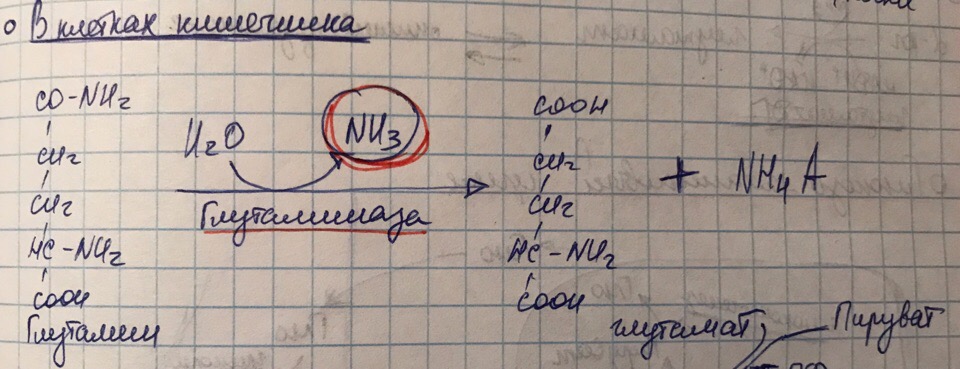 В клетках кишечника
CO-NH2
CH2
CH2
HC-NH2
COOH
Глутамин
H2O
NH3
Глутаминаза
COOH
CH2
CH2
HC-NH2
COOH
+ NH4A
глутамат
Пируват